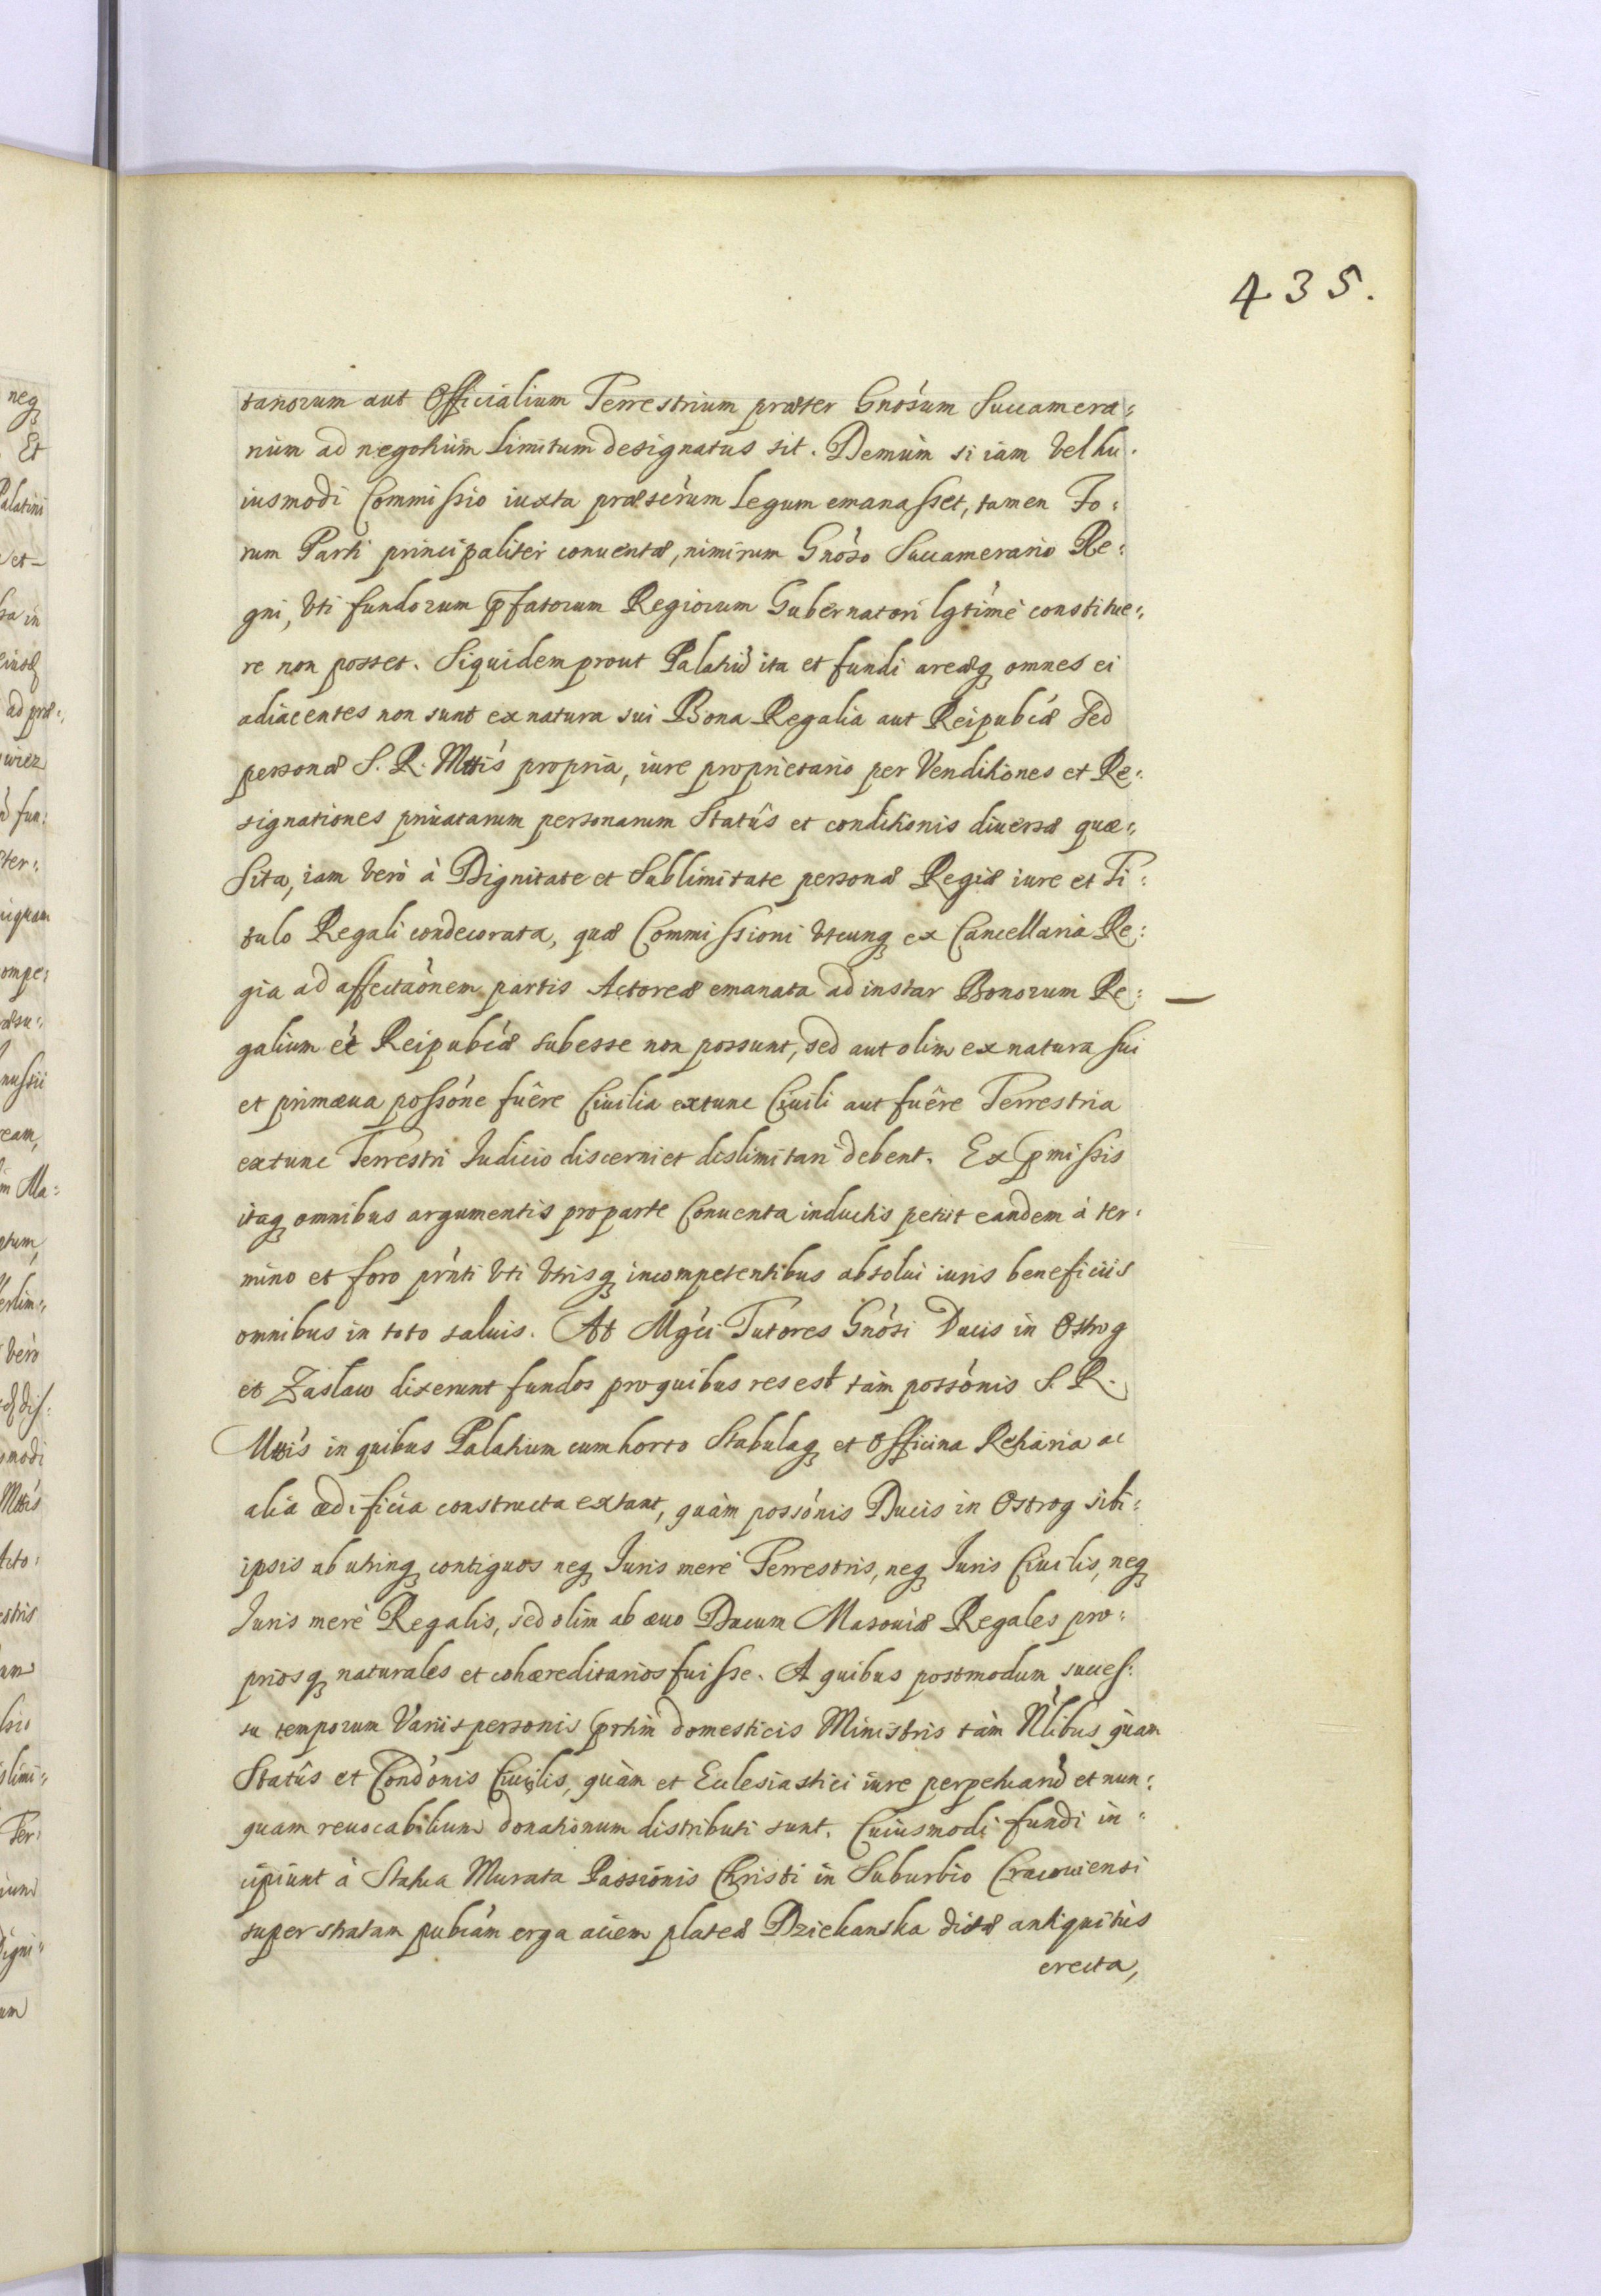 435.
tanorum aut Officialium Terrestrium præter Gnósum Succamera:
rium ad negotium Limitum designatus sit. Demùm si iam vel hu:
iusmodi Commissio iuxta præsérum Legum emanasset, tamen Fo:
rum Parti principaliter conuentæ, nimirum Gnóso Succamerario Re:
gni, vti fundorum pfatorum Regiorum Gubernatori lgtimè constitue:
re non posset. Siquidem prout Palatiũ ita et fundi areæq omnes ei
adiacentes non sunt ex natura sui Bona Regalia aut Reipubcæ sed
personæ S. R. Mttis propria, iure proprietario per Venditiones et Re:
signationes priuatarum personarum Statûs et conditionis diuersæ quæ:
sita, iam verò à Dignitate et Sublimitate personæ Regiæ iure et Ti:
tulo Regali condecorata, quæ Commissioni vtcunq ex Cancellaria Re:
gia ad affectaónem partis Actoreæ emanata ad instar Bonorum Re:
galium et Reipubcæ subesse non possunt, sed aut olim ex natura sui
et primæua possóne fuêre Ciuilia extunc Ciuili aut fuêre Terrestria
extunc Terrestri Iudicio discerni et dislimitari debent. Ex pmissis
itaq omnibus argumentis pro parte Conuenta inductis petiit eandem à ter:
mino et foro prńti vti vtrisq incompetentibus absolui iuris beneficiis
omnibus in toto saluis. At Mgci Tutores Gnósi Ducis in Ostrog
et Zaslaw dixerunt fundos pro quibus res est tàm possónis S. R.
Mttis in quibus Palatium cum horto Stabulaq et Officina Rhetiaria ac
alia ædificia constructa extant, quàm possónis Ducis in Ostrog sibi:
ipsis ab utrinq contiguos neq Iuris merè Terrestris, neq Iuris Ciuilis, neq
Iuris merè Regalis, sed olim ab æuo Ducum Masouiæ Regales pro:
priosq naturales et cohæreditarios fuisse. A quibus postmodum succes:
su temporum Variis personis prtim domesticis Ministris tàm Nlibus quàm
Statûs et Condónis Ciuilis, quàm et Ecclesiastici iure perpetuarũ et nun:
quam reuocabilium donationum distributi sunt. Cuiusmodi fundi in:
cipiunt à Statua Murata Passionis Christi in Suburbio Cracouiensi
super stratam pubcám erga aciem plateæ Dziekanska dictæ antiquitùs
erecta,